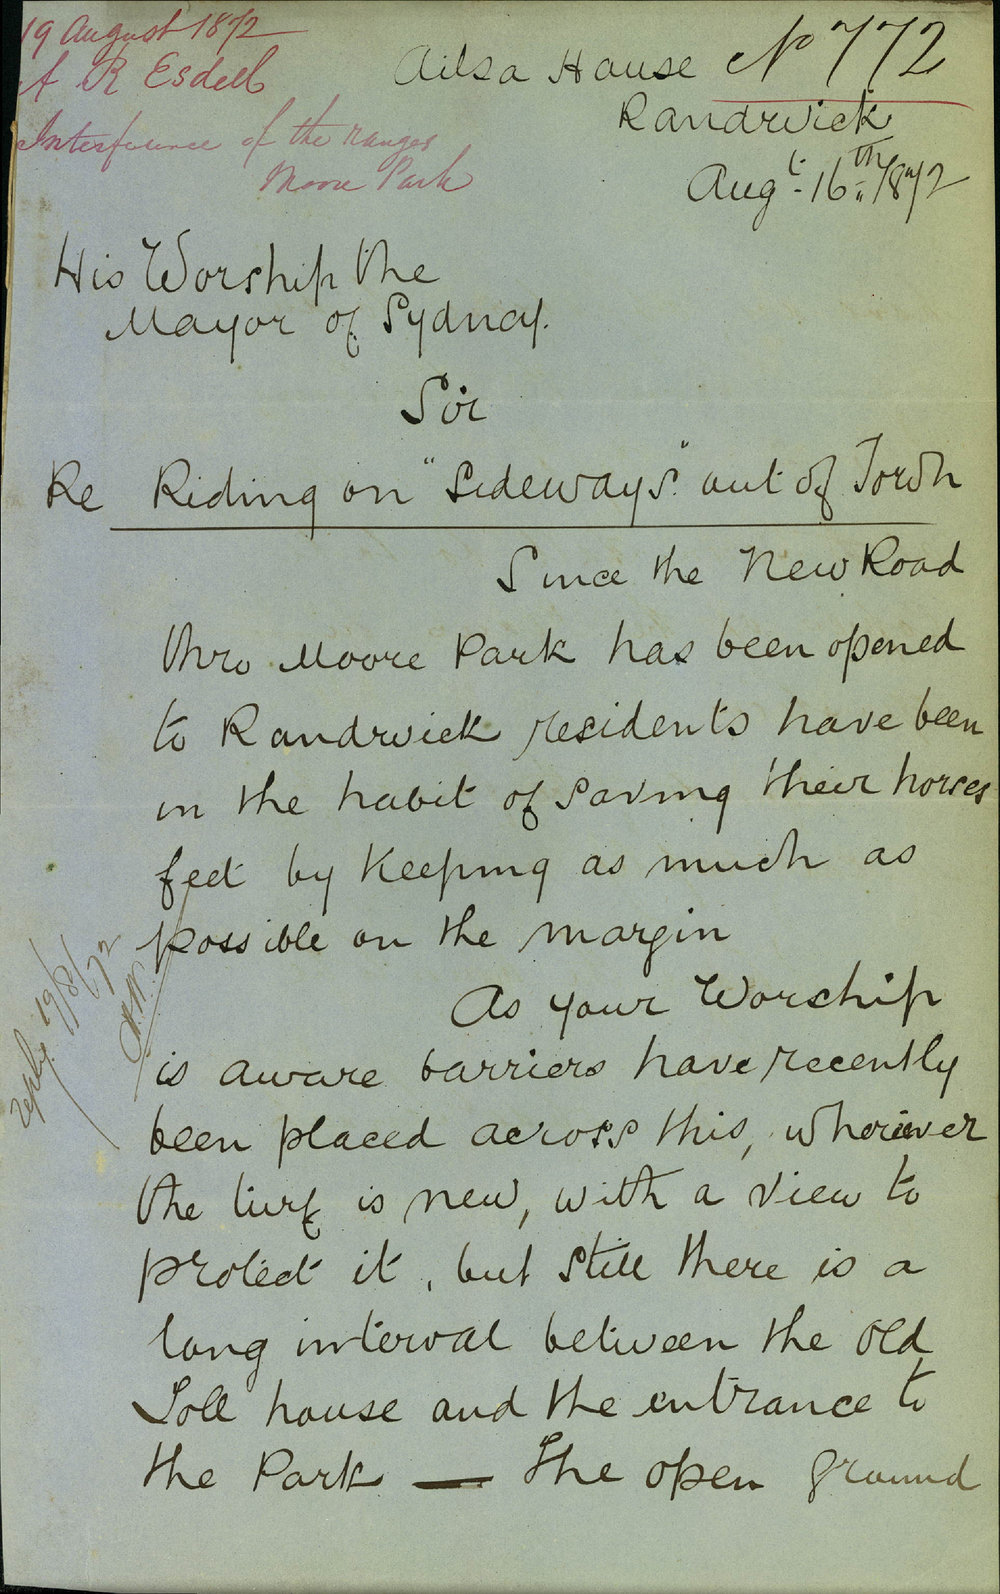 19 August 1872
A R Esdell
Interference of the ranger
Moore Park
No 772
Ailsa House
Randwick
Augt. 16th. 1872
His Worship the
Mayor of Sydney.
Sir
Re Riding on "Sideways" out of Town
Since the New Road
thro Moore Park has been opened
to Randwick residents have been
in the habit of saving their horses
feet by keeping as much as
possible on the margin
As your Worship
is aware barriers have recently
been placed across this, wherever
the turf is new, with a view to
protect it, but still there is a
long interval between the old
Toll house and the entrance to
the Park — The open ground
reply 19/8/72